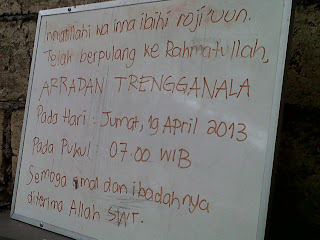 Innalillahi wa inna ilaihi roji'uun.
Telah berpulang ke Rahmatullah,
ARRADAN TRENGGANALA
Pada Hari : Jumat, 19 April 2013
Pada Pukul : 07.00 WIB
Semoga amal dan ibadahnya
diterima Allah SWT.